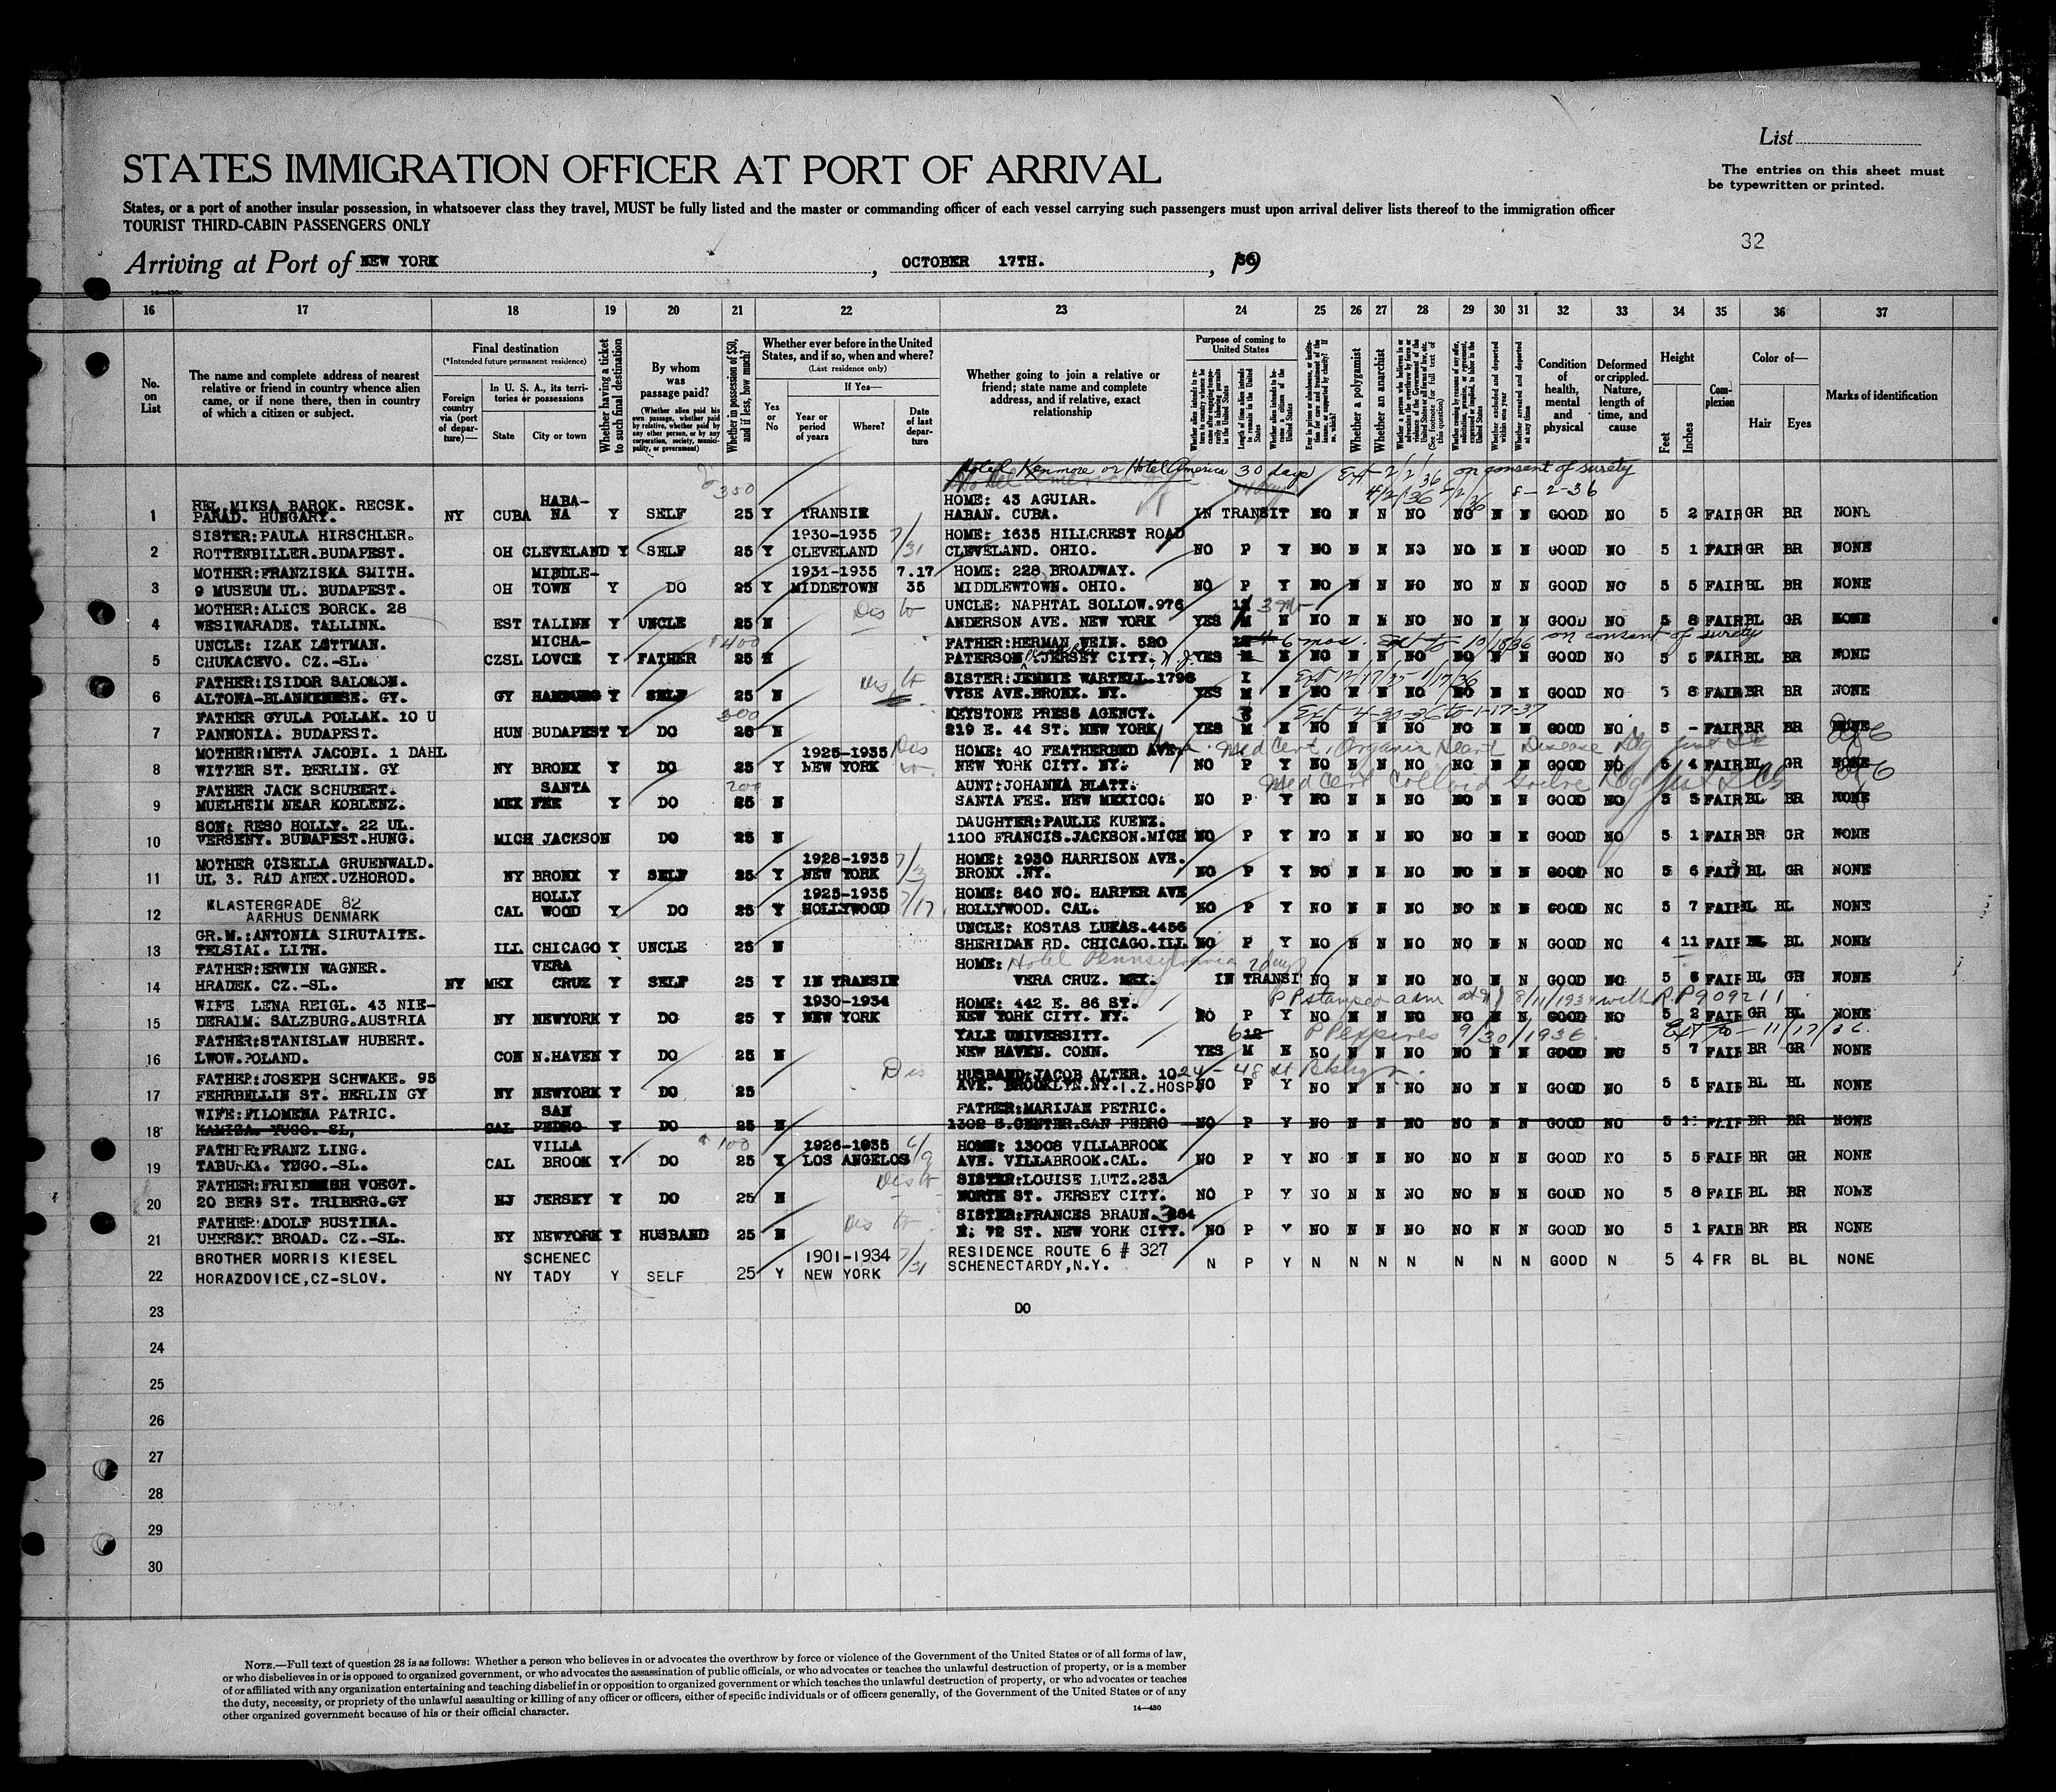 List
STATES IMMIGRATION OFFICER AT PORT OF ARRIVAL
The entries on this sheet must
be typewritten or printed.
States, or a port of another insular possession, in whatsoever class they travel, MUST be fully listed and the master or commanding officer of each vessel carrying such passengers must upon arrival deliver lists thereof to the immigration officer
TOURIST THIRD-CABIN PASSENGERS ONLY
32
Arriving at Port of NEW YORK , OCTOBER 17TH. , 19
16 17 18 19 20 21 22 23 24 25 26 27 28 29 30 31 32 33 34 35 36 37
No. on List
The name and complete address of nearest relative or friend in country whence alien came, or if none there, then in country of which a citizen or subject.
Final destination
(*Intended future permanent residence)
Foreign country via (port of departure)—
In U. S. A., its territories or possessions
State City or town
Whether having a ticket to such final destination
By whom was passage paid?
(Whether alien paid his own passage, whether paid by relative, whether paid by any other person, or by any corporation, society, municipality, or government)
Whether in possession of $50, and if less, how much?
Whether ever before in the United States, and if so, when and where?
(Last residence only)
If Yes—
Yes or No
Year or period of years
Where?
Date of last departure
Whether going to join a relative or friend; state name and complete address, and if relative, exact relationship
Purpose of coming to United States
Length of time alien intends to remain in the United States
Whether alien intends to become a citizen of the United States
Whether a polygamist
Whether an anarchist
Whether excluded and deported within one year
Whether arrested and deported at any time
Condition of health, mental and physical
Deformed or crippled. Nature, length of time, and cause
Height
Feet Inches
Complexion
Color of—
Hair Eyes
Marks of identification
Hotel Kenmore or Hotel America 30 days Ext 2/2/36 on consent of surety
350 8-2-36
REL MIKSA BAROK. RECSK. HABA- HOME: 43 AGUIAR.
1 PARAD. HUNGARY. NY CUBA NA Y SELF 25 Y TRANSIT HABAN. CUBA. IN TRANSIT NO N N NO NO N N GOOD NO 5 2 FAIR GR BR NONE
SISTER:PAULA HIRSCHLER. 1930-1935 7/ HOME: 1635 HILLCREST ROAD
2 ROTTENBILLER.BUDAPEST. OH CLEVELAND Y SELF 25 Y CLEVELAND 31 CLEVELAND. OHIO. NO P Y NO N N NO NO N N GOOD NO 5 1 FAIR GR BR NONE
MOTHER:FRANZISKA SMITH. MIDDLE- 1931-1935 7.17 HOME: 228 BROADWAY.
3 9 MUSEUM UL. BUDAPEST. OH TOWN Y DO 25 Y MIDDETOWN 35 MIDDLEWTOWN. OHIO. NO P Y NO N N NO NO N N GOOD NO 5 5 FAIR BL BR NONE
MOTHER:ALICE BORCK. 28 UNCLE: NAPHTAL SOLLOW.976 3
4 WESIWARADE. TALLINK. EST TALINN Y UNCLE 25 N ANDERSON AVE. NEW YORK YES M N NO N N NO NO N N GOOD NO 5 8 FAIR BL GR NONE
UNCLE: IZAK LUTTMAN. MICHA- $400 FATHER:HERMAN WEIN. 520 6 mos. Ext to 10/18/36 on consent of surety
5 CHUKACEVO. CZ.-SL. CZSL LOVCE Y FATHER 25 N PATERSON JERSEY CITY. N.J. YES M N NO N N NO NO N N GOOD NO 5 5 FAIR BL BR NONE
FATHER:ISIDOR SALOMON. SISTER:JENNIE WARTELL.1796 I
6 ALTONA-BLANKENESE. GY. GY HAMBURG Y SELF 25 N VYSE AVE.BRONX. NY. YES M N NO N N NO NO N N GOOD NO 5 8 FAIR BR BR NONE
FATHER GYULA POLLAK. 10 U 300 KEYSTONE PRESS AGENCY.
7 PANNONIA. BUDAPEST. HUN BUDAPEST Y DO 25 N 219 E. 44 ST. NEW YORK YES M N NO N N NO NO N N GOOD NO 5 - FAIR BR BR NONE
MOTHER:META JACOBI. 1 DAHL 1925-1935 HOME: 40 FEATHERBED AVE. Med Cert. Organic Heart Disease
8 WITZER ST. BERLIN. GY NY BRONX Y DO 25 Y NEW YORK NEW YORK CITY. NY. NO P Y NO N N NO NO N N GOOD NO 5 4 FAIR BL GR NONE
FATHER JACK SCHUBERT. SANTA 200 AUNT:JOHANNA BLATT. Med Cert Colloid Goitre
9 MUELHEIM NEAR KOBLENZ. MEX FEE Y DO 25 N SANTA FEE. NEW MEXICO. NO P Y NO N N NO NO N N GOOD NO 5 5 FAIR BL BR NONE
SON: RESO HOLLY. 22 UL. DAUGHTER:PAULIE KUENZ.
10 VERSENY. BUDAPEST.HUNG. MICH JACKSON DO 25 N 1100 FRANCIS.JACKSON.MICH NO P Y NO N N NO NO N N GOOD NO 5 1 FAIR BR GR NONE
MOTHER GISELLA GRUENWALD. 1928-1935 7/ HOME: 1930 HARRISON AVE.
11 UL 3. RAD ANEX.UZHOROD. NY BRONX Y SELF 25 Y NEW YORK 3 BRONX .NY. NO P Y NO N N NO NO N N GOOD NO 5 6 FAIR BL GR NONE
KLASTERGRADE 82 HOLLY 1925-1935 7/ HOME: 840 NO. HARPER AVE
12 AARHUS DENMARK CAL WOOD Y DO 25 Y HOLLYWOOD 17 HOLLYWOOD. CAL. NO P Y NO N N NO NO N N GOOD NO 5 7 FAIR BL BL NONE
GR.M.:ANTONIA SIRUTAITE. UNCLE: KOSTAS LUKAS.4456
13 TELSIAI. LITH. ILL CHICAGO Y UNCLE 25 N SHERIDAN RD. CHICAGO.ILL NO P Y NO N N NO NO N N GOOD NO 4 11 FAIR BL NONE
FATHER:ERWIN WAGNER. VERA HOME: Hotel Pennsylvania 2 days
14 HRADEK. CZ.-SL. NY MEX CRUZ Y SELF 25 Y IN TRANSIT VERA CRUZ. MEX. IN TRANSI NO N N NO NO N N GOOD NO 5 6 FAIR BL GR NONE
WIFE LENA REIGL. 43 NIE- 1930-1934 HOME: 442 E. 86 ST. PP stamped adm at NY 8/11/1934 with R.P 909211
15 DERALM. SALZBURG.AUSTRIA NY NEWYORK Y DO 25 Y NEW YORK NEW YORK CITY. NY. NO P Y NO N N NO NO N N GOOD NO 5 2 FAIR GR BL NONE
FATHER:STANISLAW HUBERT. YALE UNIVERSITY. 6 12 PP expires 9/30/1936 Ext to 11/17/36.
16 LWOW.POLAND. CON N.HAVEN Y DO 25 N NEW HAVEN. CONN. YES M N NO N N NO NO N N GOOD NO 5 7 FAIR BR GR NONE
FATHER:JOSEPH SCHWAKE. 95 Dis HUSBAND:JACOB ALTER. 1024 - 48 St Bklyn.
17 FEHRBELLIN ST. BERLIN GY NY NEWYORK Y DO 25 AVE. BROOKLYN.NY.I.Z.HOSP NO P Y NO N N NO NO N N GOOD NO 5 5 FAIR BL BL NONE
WIFE:FILOMENA PATRIC. SAN FATHER:MARIJAN PETRIC.
18 KAMICA. YUGO. SL, CAL PEDRO Y DO 25 N 1302 S.CENTER.SAN PEDRO NO P Y NO N N NO NO N N GOOD NO 5 FAIR BR BR NONE
FATHER:FRANZ LING. VILLA $100 1926-1935 6/ HOME: 13008 VILLABROOK
19 TABURKA. YUGO.-SL. CAL BROOK Y DO 25 Y LOS ANGELOS 9 AVE. VILLABROOK.CAL. NO P Y NO N N NO NO N N GOOD NO 5 5 FAIR BR GR NONE
FATHER:FRIEDRISH VOEGT. SISTER:LOUISE LUTZ.233
20 20 BERG ST. TRIBERG.GY NJ JERSEY Y DO 25 N NORTH ST. JERSEY CITY. NO P Y NO N N NO NO N N GOOD NO 5 8 FAIR BL BR NONE
FATHER:ADOLF BUSTINA. SISTER:FRANCES BRAUN. 364
21 UHERSKY BROAD. CZ.-SL. NY NEWYORK Y HUSBAND 25 N E: 72 ST. NEW YORK CITY. NO P Y NO N N NO NO N N GOOD NO 5 1 FAIR BR BR NONE
BROTHER MORRIS KIESEL SCHENEC 1901-1934 7/ RESIDENCE ROUTE 6 # 327
22 HORAZDOVICE,CZ-SLOV. NY TADY Y SELF 25 Y NEW YORK 31 SCHENECTARDY,N.Y. N P Y N N N N N N N GOOD N 5 4 FR BL BL NONE
23 DO
24
25
26
27
28
29
30
NOTE.—Full text of question 28 is as follows: Whether a person who believes in or advocates the overthrow by force or violence of the Government of the United States or of all forms of law,
or who disbelieves in or is opposed to organized government, or who advocates the assassination of public officials, or who advocates or teaches the unlawful destruction of property, or is a member
of or affiliated with any organization entertaining and teaching disbelief in or opposition to organized government or which teaches the unlawful destruction of property, or who advocates or teaches
the duty, necessity, or propriety of the unlawful assaulting or killing of any officer or officers, either of specific individuals or of officers generally, of the Government of the United States or of any
other organized government because of his or their official character.
14—430